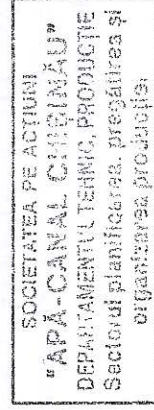 SOCIETATEA PE ACŢIUNI
"APĂ-CANAL CHIŞINĂU"
DEPARTAMENTUL TEHNIC PRODUCŢIE
Sectorul planificarea, pregătirea şi
organizarea producţiei